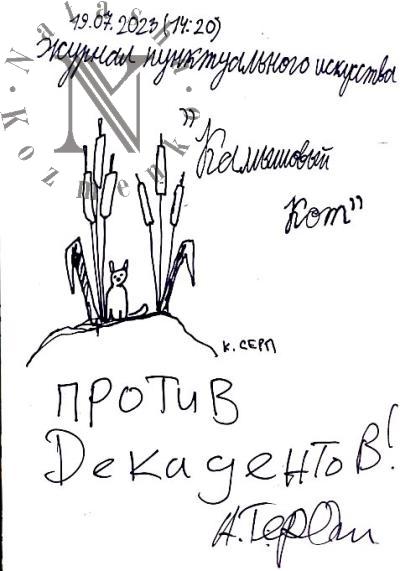 19.07.2023 (14:20)
Журнал пунктуального искусства
"Камышовый
Кот"
К. СЕРП
ПРОТИВ
ДекадентОВ!
Natasha Kozmenko
N